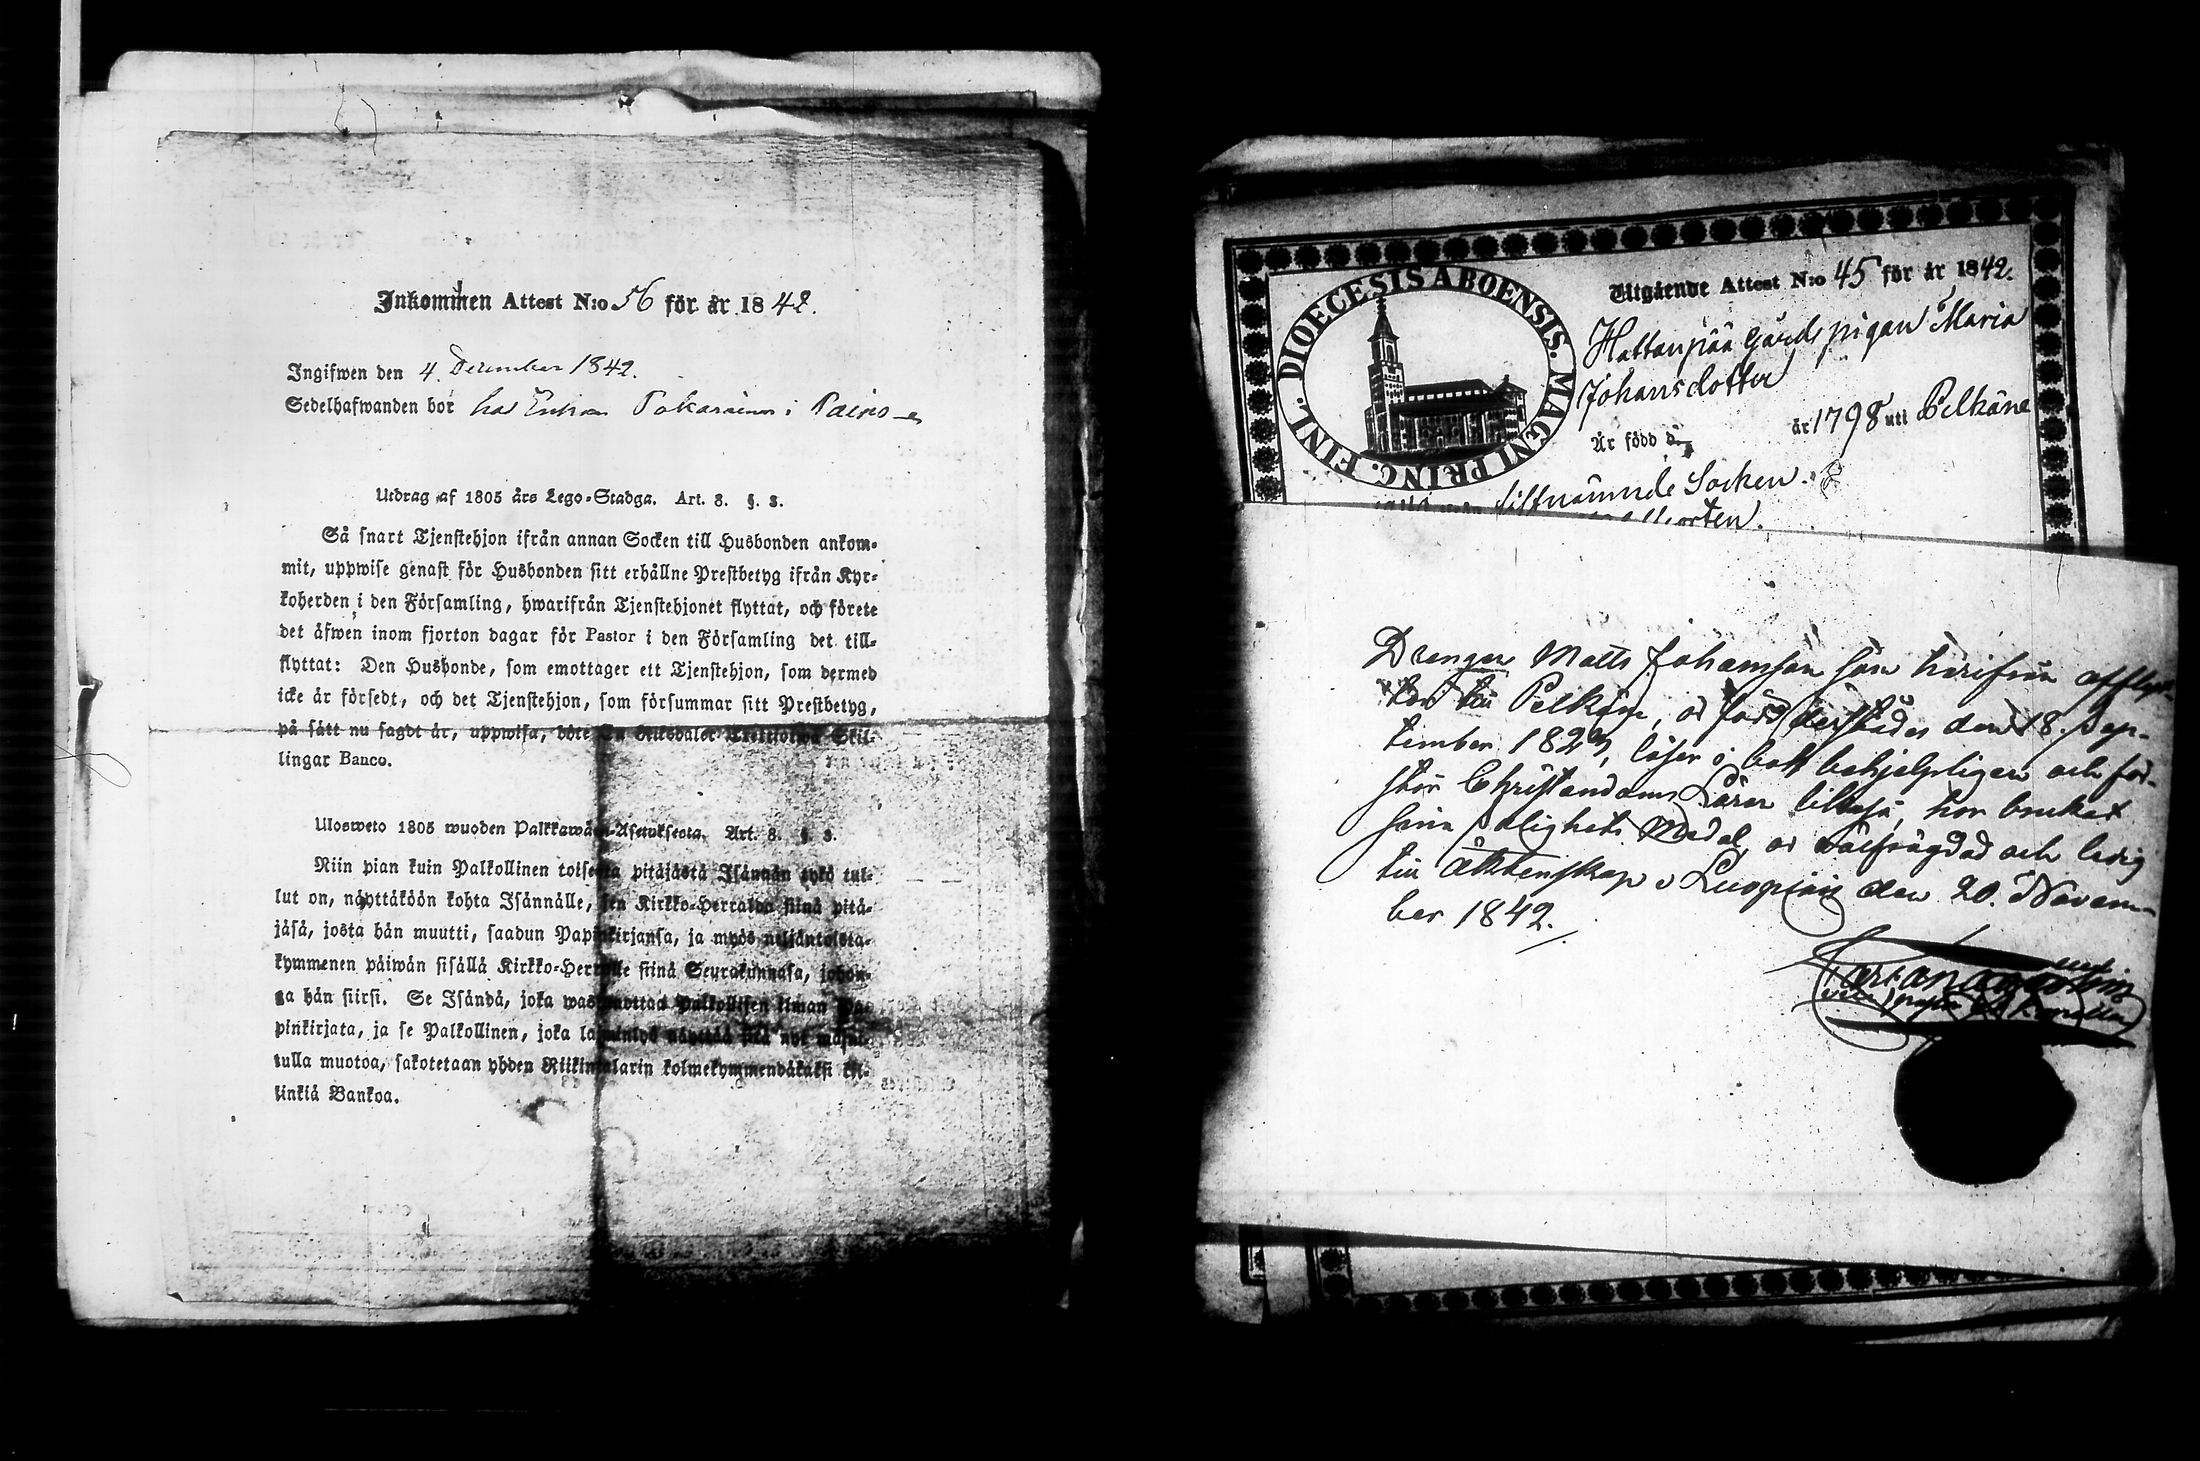 Inkommen Attest N:o 56 för år 1842.
Ingifwen den 4. December 1842.
Sedelhafwanden bor hos Enkan i
Utdrag af 1805 års Lego-Stadga. Art. 8. §. 3.
Så snart Tjenstehjon ifrån annan Socken till Husbonden ankom-
mit, uppwise genast för Husbonden sitt erhållne Prestbetyg ifrån Kyr-
koherden i den Församling, hwarifrån Tjenstehjonet flyttat, och förete
det äfwen inom fjorton dagar för Pastor i den Församling det till-
flyttat: Den Husbonde, som emottager ett Tjenstehjon, som dermed
icke är försedt, och det Tjenstehjon, som försummar sitt Prestbetyg,
på sätt nu sagdt är, uppwisa, böte En Riksdaler Trettiotwå Skil-
lingar Banco.
Ulosweto 1805 wuoden Palkkawäen-Asetuksesta. Art. 8. §. 3.
Niin pian kuin Palkollinen toisesta pitäjästä Isännän tykö tul-
lut on, näyttäköön kohta Isännälle, sen Kirkko-Herralda siinä pitä-
jäsä, josta hän muutti, saadun Papinkirjansa, ja myös neljäntoista-
kymmenen päiwän sisällä Kirkko-Herralle siinä Seurakunnasa, johon-
ga hän siirsi. Se Isändä, joka wastaanottaa Palkollisen ilman Pa-
pinkirjata, ja se Palkollinen, joka laiminlyö näyttää sitä nyt mainit-
tulla muotoa, sakotetaan yhden Riikintalarin kolmekymmendäkaksi kil-
linkiä Bankoa.
DIOECESIS ABOENSIS. MAGNI PRINC. FINL.
Utgående Attest N:o 45 för år 1842.
Hattanpää Gårds pigan Maria
Johansdotter
Är född d. år 1798 uti Pelkäne
sistnämnde Socken.
Drengen Matts Johansson som härifrån afflyt-
tar till Pelkäne, är född derstädes den 18. Sep-
tember 1823, läser i bok behjelpligen och för-
står Christendoms Läran tillika, har brukat
sina salighets Medel, är välfrägdad och ledig
till Äktenskap. den 20. Novem-
ber 1842.